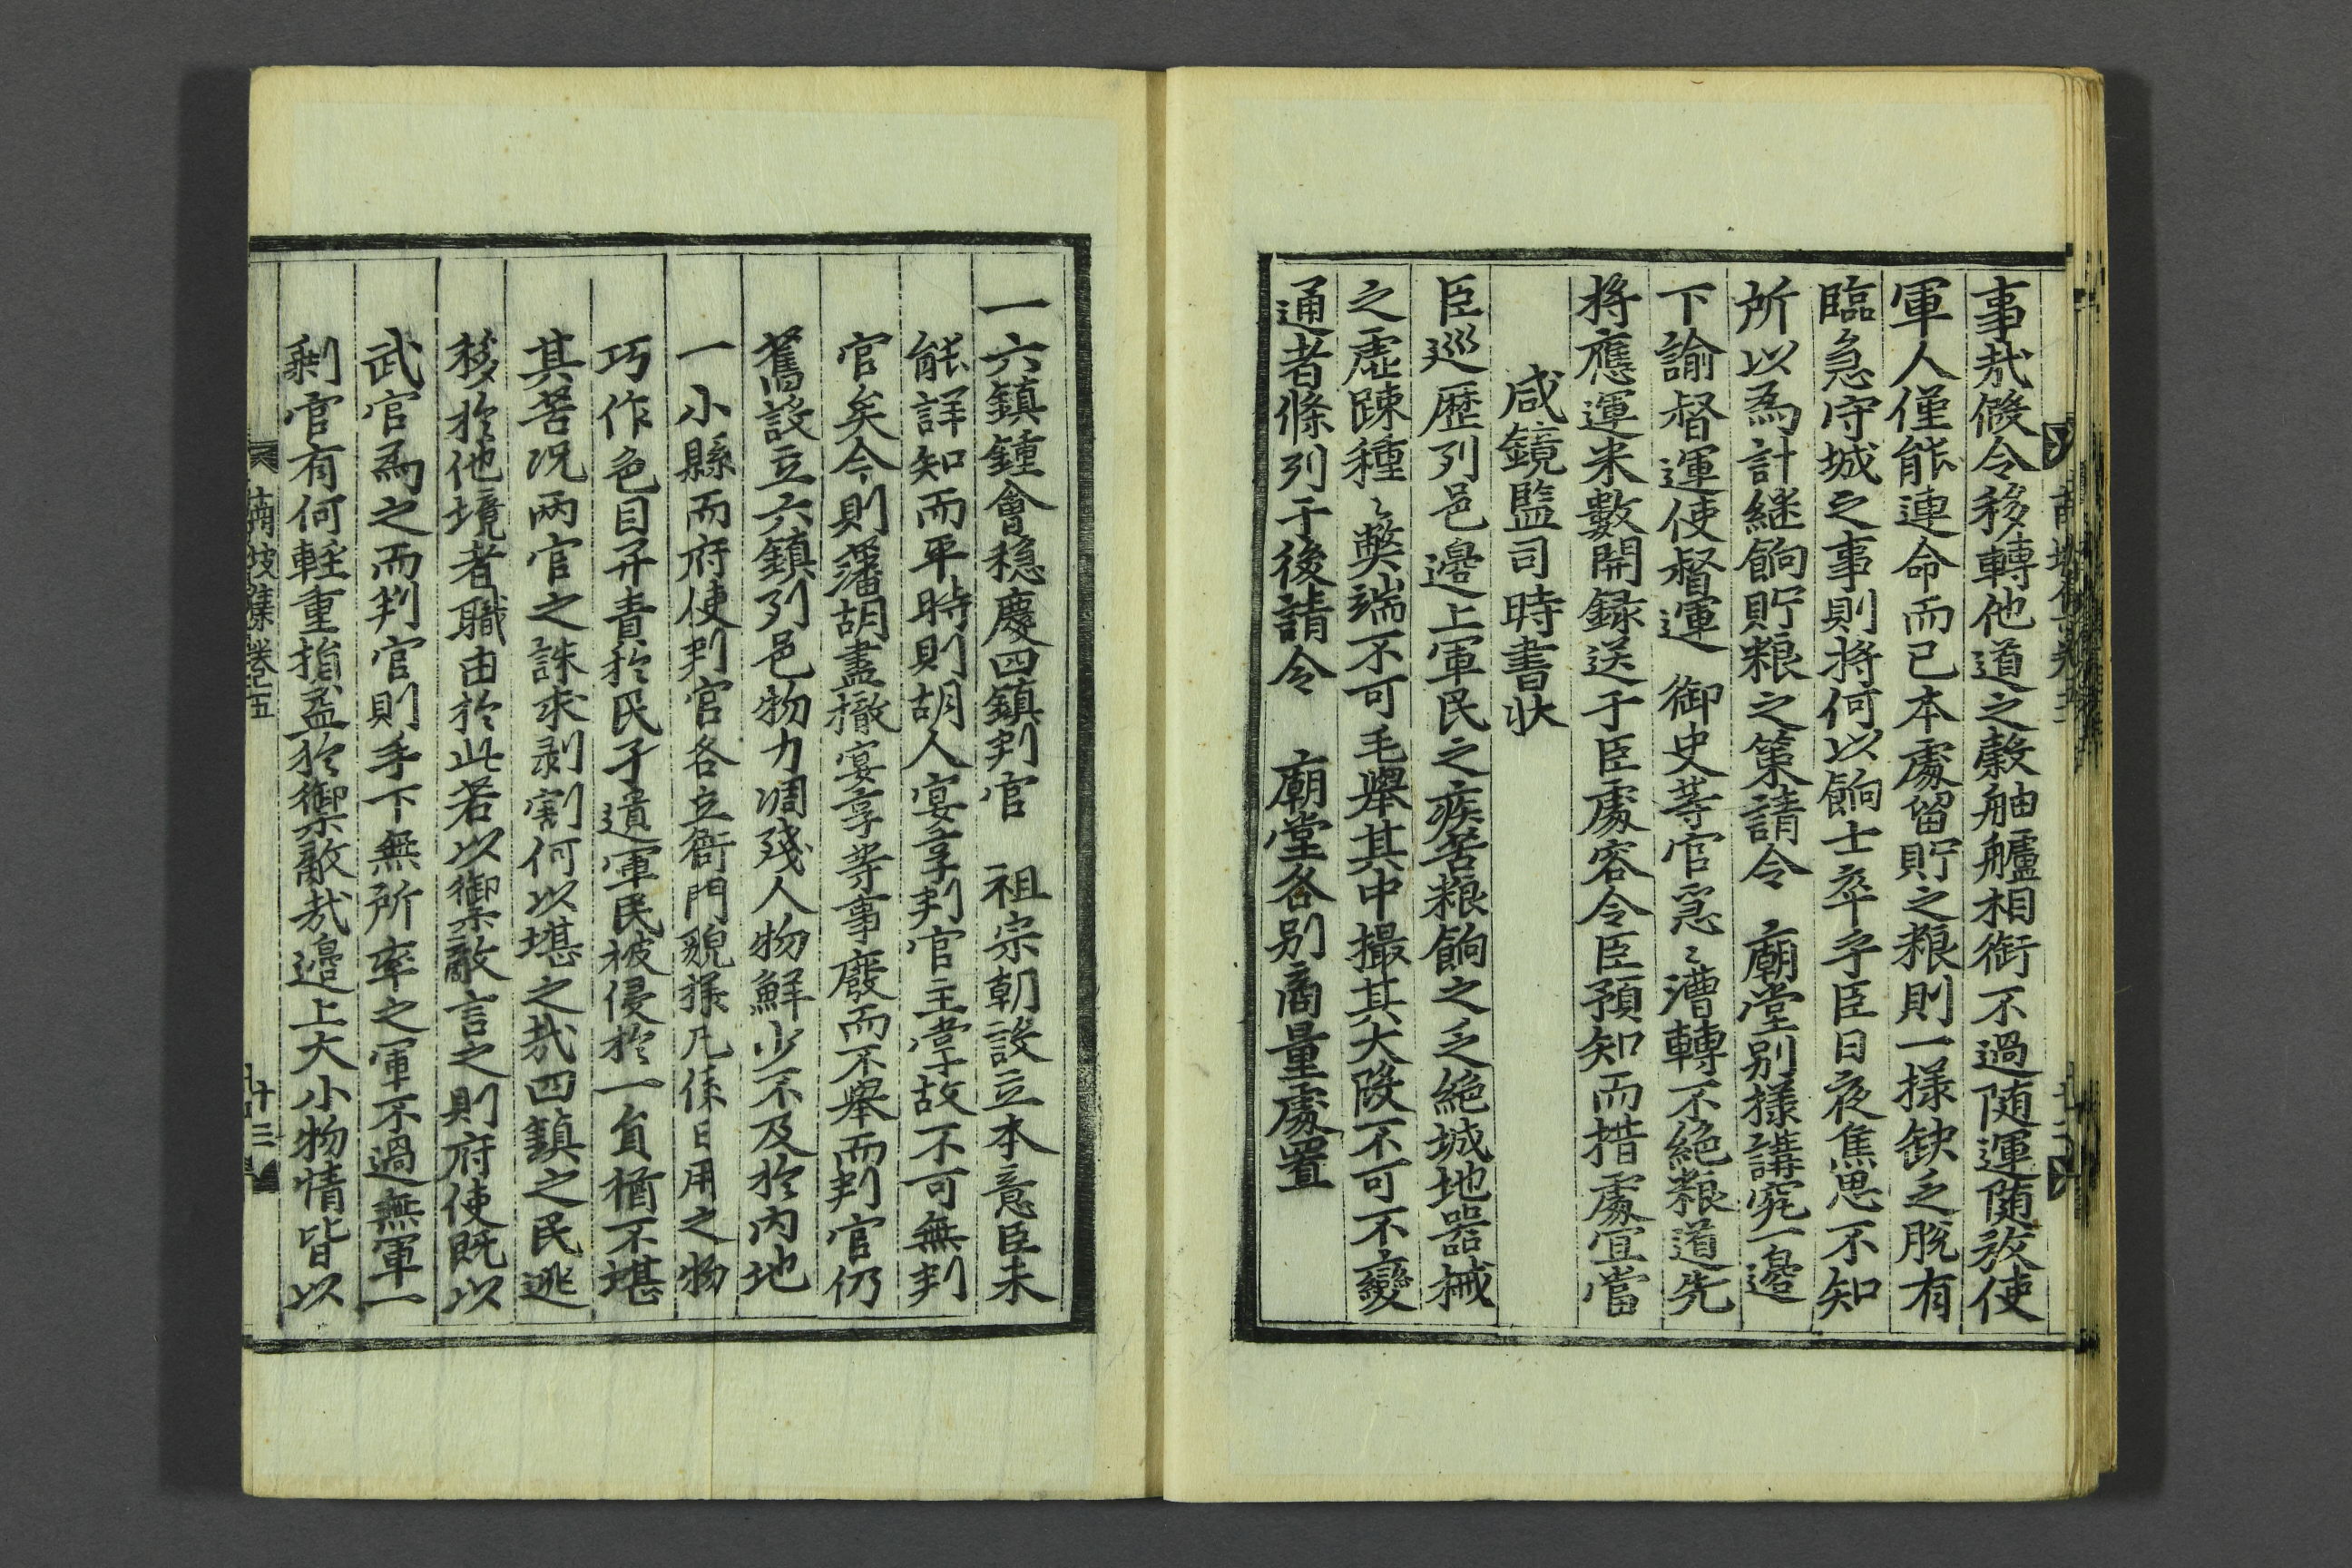 事㢤倐令移轉他道之穀舳艫相銜不過随運随放使
軍人僅能連命而已本處留貯之粮則一㨾缺乏脱有
臨急守城之事則将何以餉士卒乎臣日夜焦思不知
所以爲計継餉貯粮之策請令 廟堂别㨾講究一邊
下諭督運使督運 御史等官急〻漕轉不絶粮道先
将應運米數開録送于臣處容令臣預知而措處宜當
咸鏡監司時書状
臣巡歴列邑邉上軍民之疾苦粮餉之乏絶城地器械
之虚踈種〻獘端不可毛舉其中撮其大段不可不變
通者條列于後請令 廟堂各别商量處置
一六鎮鍾會穏慶四鎮判官 祖宗朝設立本意臣未
能詳知而平時則胡人宴享判官主掌故不可無判
官矣今則藩胡盡撤宴享等事廢而不舉而判官仍
舊設立六鎮列邑物力凋殘人物鮮少不及於内地
一小縣而府使判官各立衙門貌㨾凡係日用之物
巧作色目并責於民孑遺軍民被侵於一負猶不堪
其苦况兩官之誅求剥割何以堪之㢤四鎮之民逃
移於他境者職由於此若以禦敵言之則府使既以
武官爲之而判官則手下無所率之軍不過無軍一
剩官有何輊重損益於禦敵㢤邉上大小物情皆以
南坡集卷之五
十三